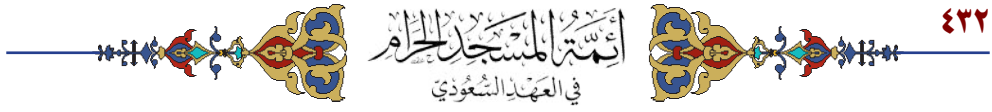 ٤٣٢
أَئِمَّةُ الْمَسْجِدِ الْحَرَامِ
فِي الْعَهْدِ السُّعُودِيّ